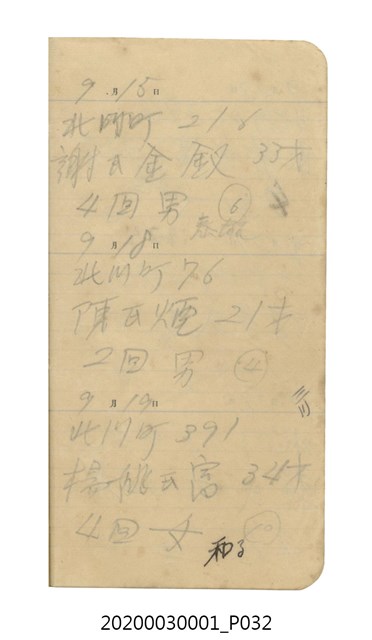 9月15日
北門町 216
謝氏金釵 33才
4回男 6
9月18日
北門町76
陳氏煙 21才
2回 男 4
9月19日
北門町391
楊姚氏富 34才
4回 女
和子
20200030001_P032